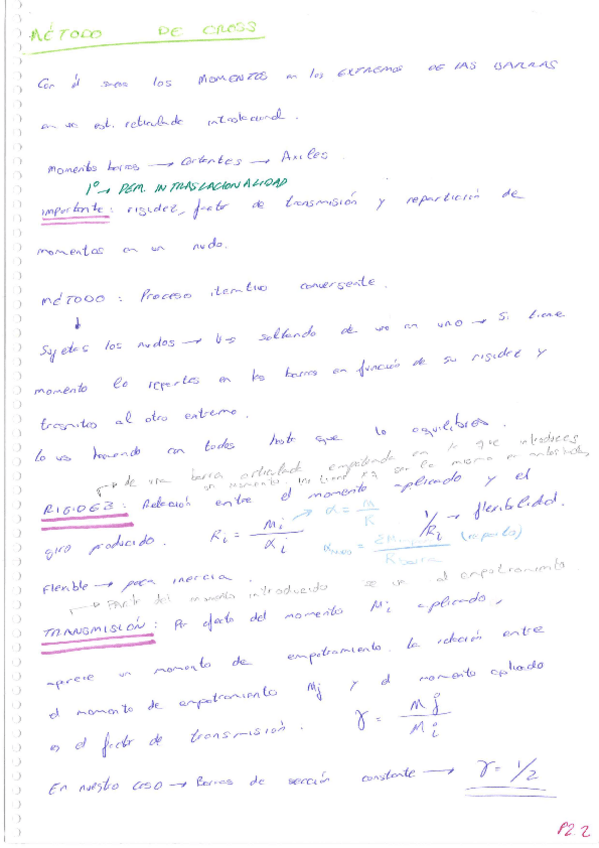 MÉTODO DE CROSS
Con él sacas los MOMENTOS en los EXTREMOS DE LAS BARRAS
en una est. reticulada intraslacional.
Momentos barras → Cortantes → Axiles.
1º → DEM. INTRASLACIONALIDAD
importante: rigidez, factor de transmisión y repartición de
momentos en un nudo.
MÉTODO: Proceso iterativo convergente.
↓
Sujetas los nudos → Vas soltando de uno en uno → Si tiene
momento lo repartes en las barras en función de su rigidez y
trasmites al otro extremo.
lo vas haciendo con todos hasta que lo equilibras.
→ de una barra articulada empotrada en la que introduces
un momento
RIGIDEZ: Relación entre el momento aplicado y el
giro producido. Ri = Mi / αi → α = M / K 1/Ri → flexibilidad.
Flexible → poca inercia.
→ Parte del momento introducido se va al empotramiento.
TRANSMISIÓN: Por efecto del momento Mi aplicado,
aparece un momento de empotramiento. la relación entre
el momento de empotramiento Mj y el momento aplicado
es el factor de transmisión. γ = Mj / Mi
En nuestro caso → Barras de sección constante → γ = 1/2
P2.2